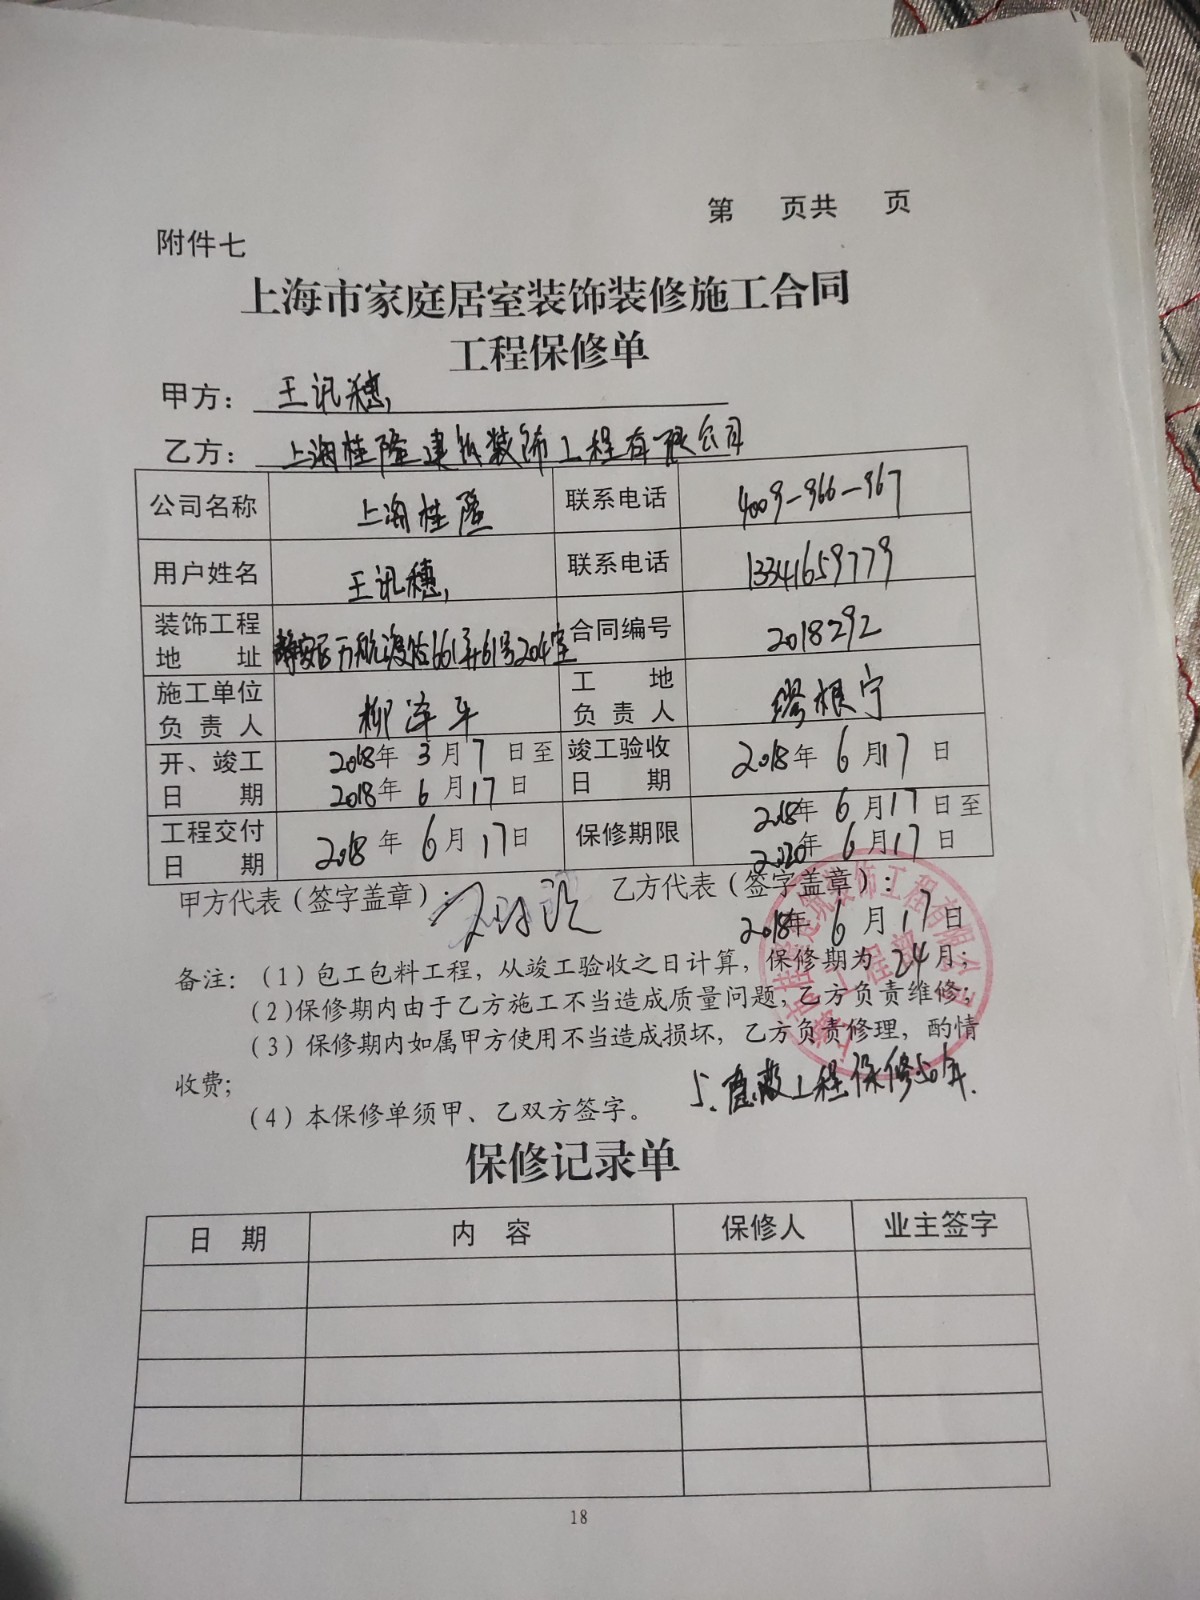 第 页共 页
附件七
上海市家庭居室装饰装修施工合同
工程保修单
甲方：王讯穗
乙方：上海桂隆建筑装饰工程有限公司
公司名称 上海桂隆 联系电话 4009-966-967
用户姓名 王讯穗 联系电话 13341659779
装饰工程地址 静安区万航渡路661弄61号204室 合同编号 2018292
施工单位负责人 柳泽平 工地负责人 缪根宁
开、竣工日期 2018年3月7日至2018年6月17日 竣工验收日期 2018年6月17日
工程交付日期 2018年6月17日 保修期限 2018年6月17日至2020年6月17日
甲方代表（签字盖章）： 乙方代表（签字盖章）：
2018年6月17日
备注：（1）包工包料工程，从竣工验收之日计算，保修期为24月；
（2）保修期内由于乙方施工不当造成质量问题，乙方负责维修；
（3）保修期内如属甲方使用不当造成损坏，乙方负责修理，酌情
收费；
（4）本保修单须甲、乙双方签字。
5.隐蔽工程保修50年.
保修记录单
日期 内容 保修人 业主签字
18